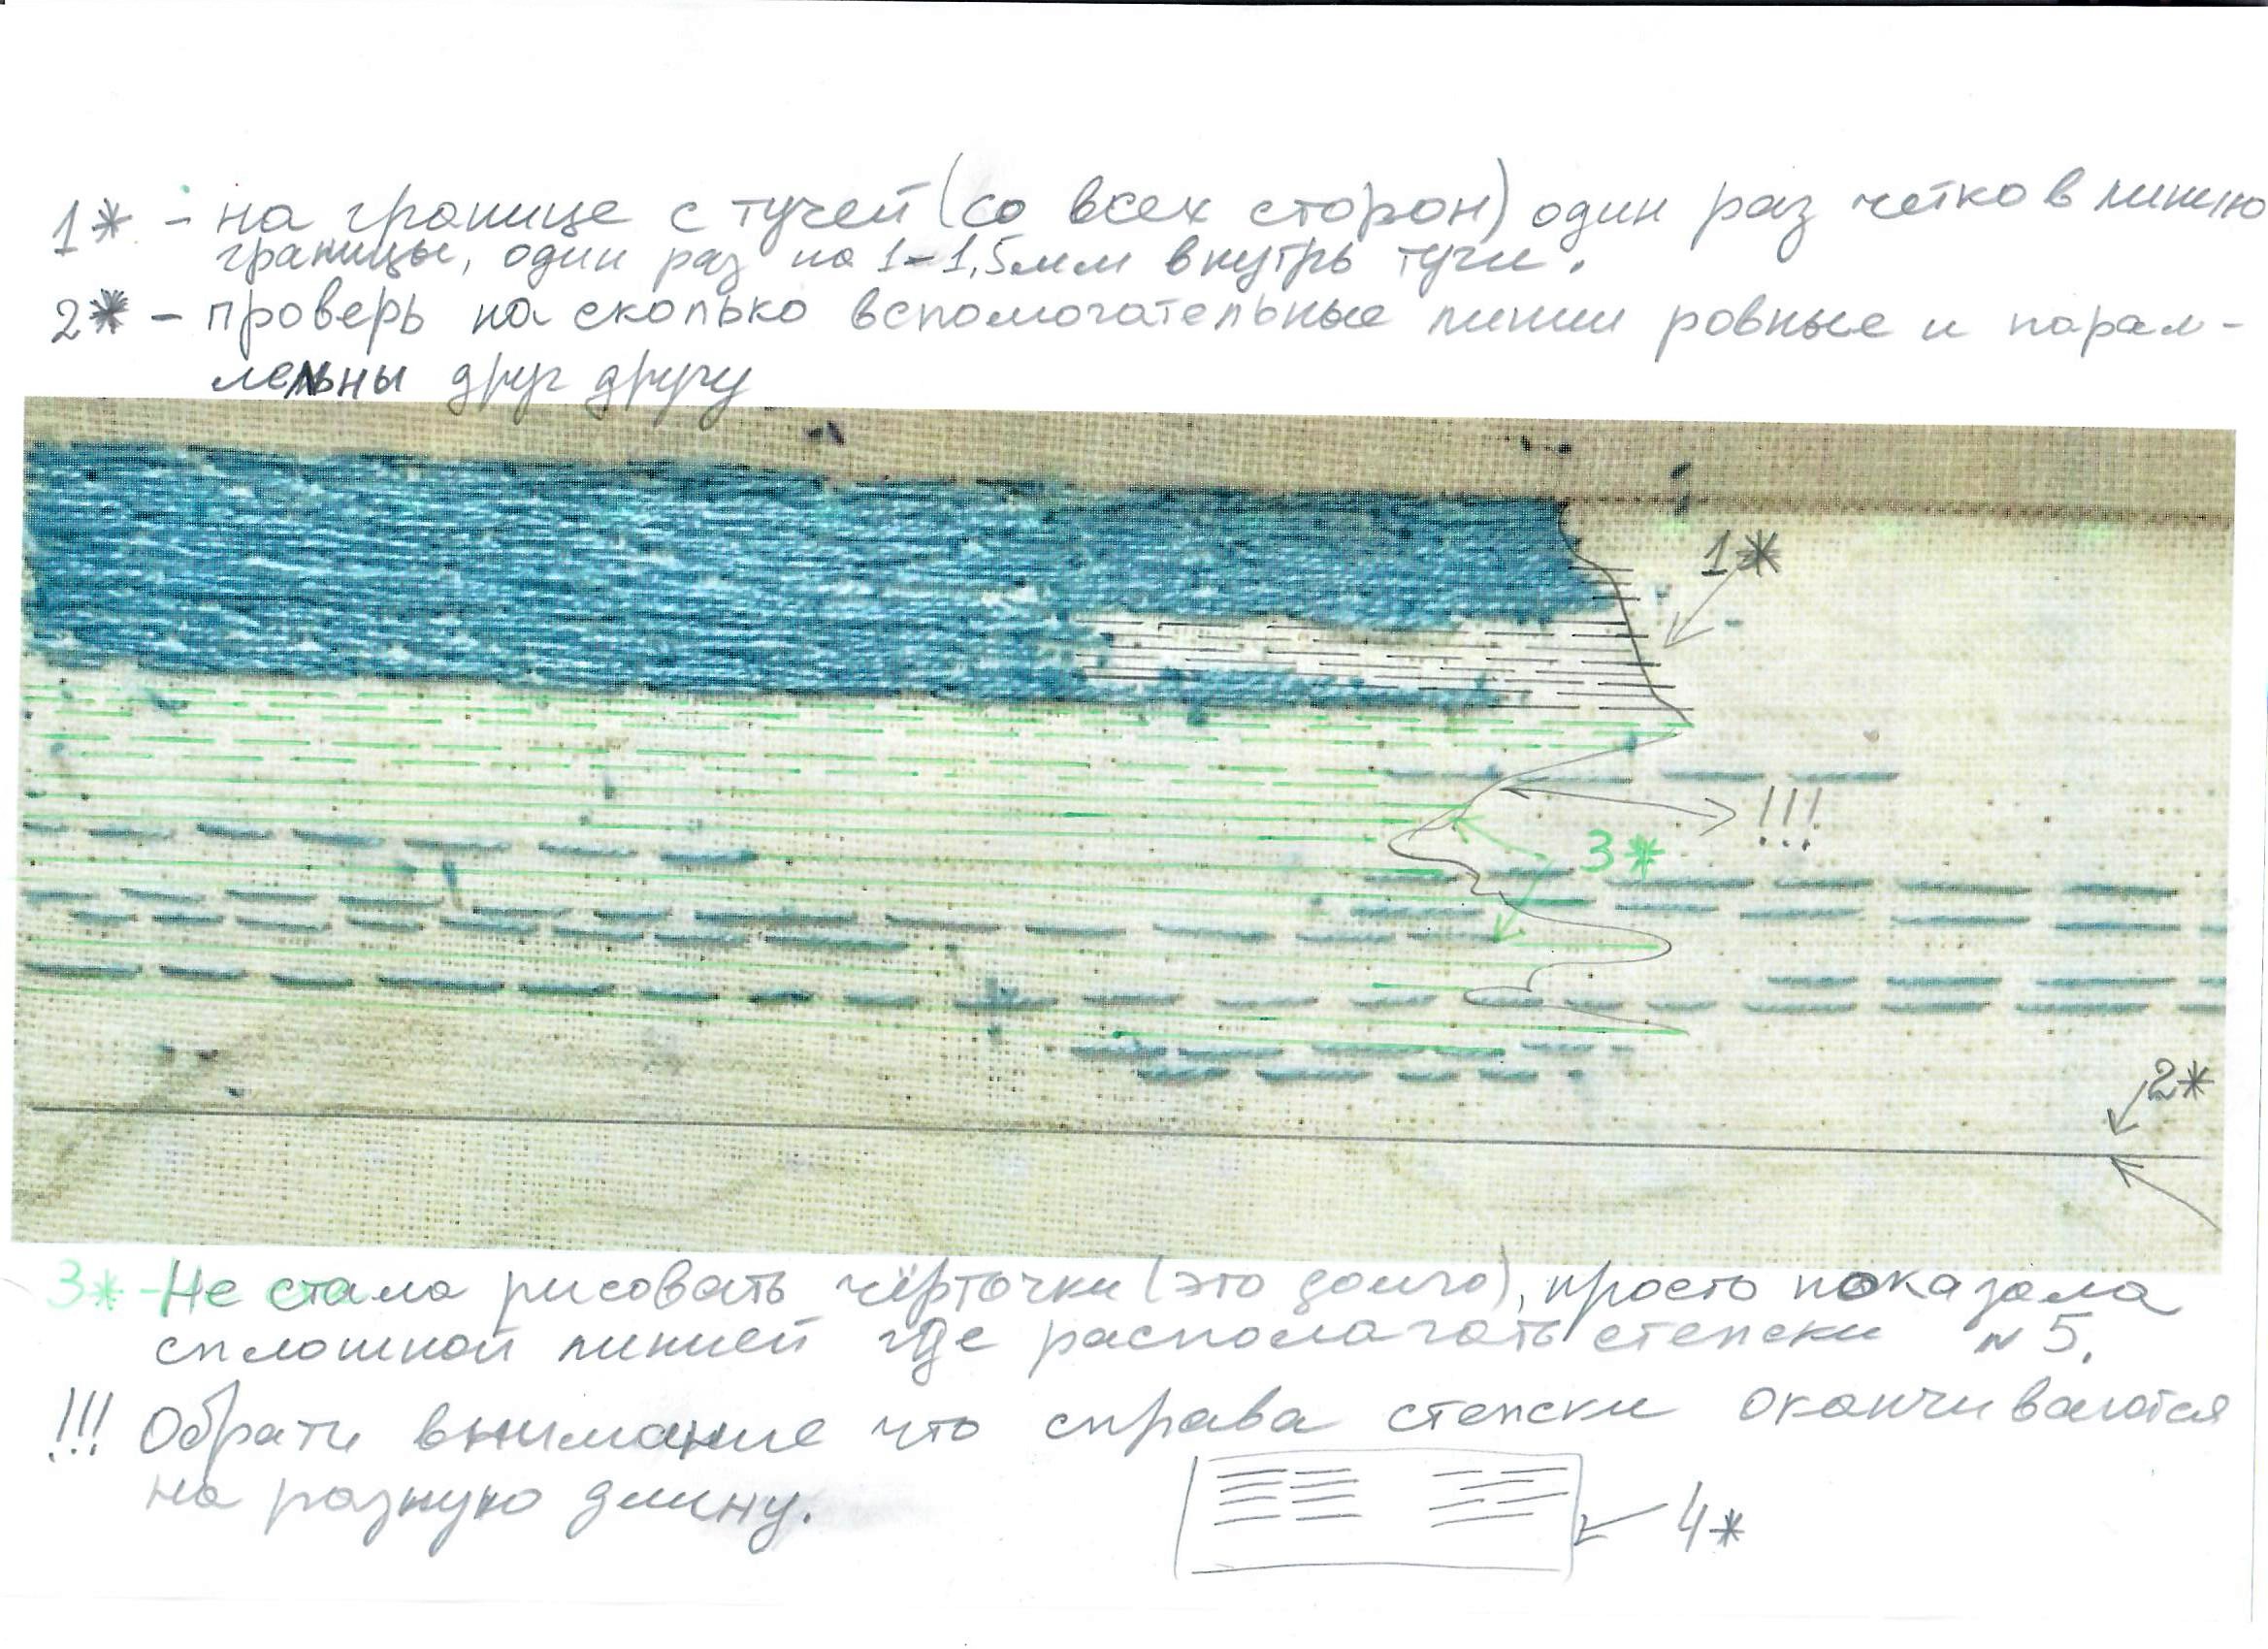 1* - на границе с тучей (со всех сторон) один раз четко в линию
границы, один раз на 1-1,5мм внутрь тучи.
2* - проверь на сколько вспомогательные линии ровные и парал-
лельны друг другу
1*
!!!
3*
2*
3* - Не стала рисовать чёрточки (это долго), просто показала
сплошной линией где располагать стежки №5.
!!! Обрати внимание что справа стежки оканчиваются
на разную длину.
4*